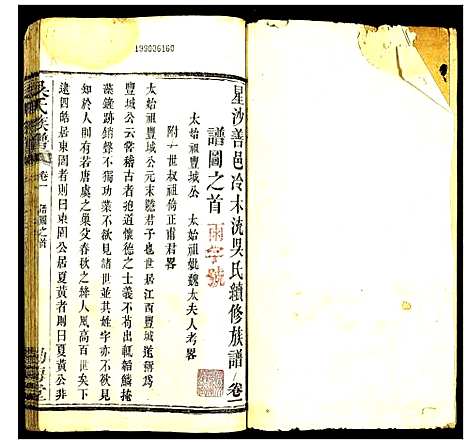 199036160
星沙善邑冷木沖吳氏續修族譜卷一
譜圖之首 雨字號
太始祖豐城公 太始祖妣魏太夫人考畧
附一世叔祖倚正甫君畧
太始祖豐城公元末隱君子也世居江西豐城遂稱爲
豐城公云常稽古者抱道懷德之士義不苟出輒韜鱗掩
葉鏟跡銷聲不獨功業不欲見諸世並其姓字亦不欲見
知於人則有若唐虞之巢父春秋之綘人凡百世矣下
遠四皓居東園者則曰東園公居夏黃者則曰夏黃公非
吳氏族譜 卷一 譜圖之首